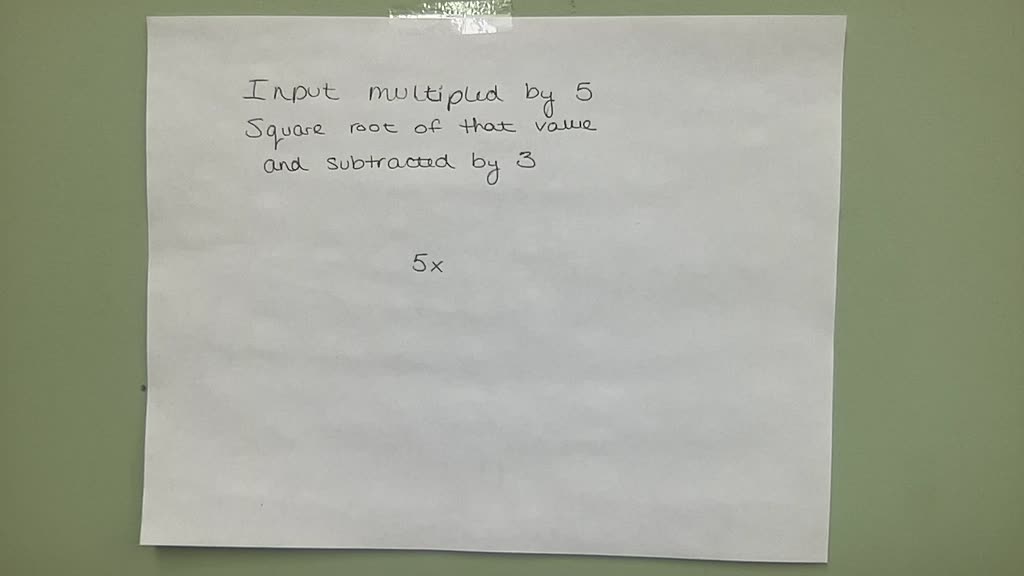 Input multipled by 5
Square root of that value
and subtracted by 3
5x